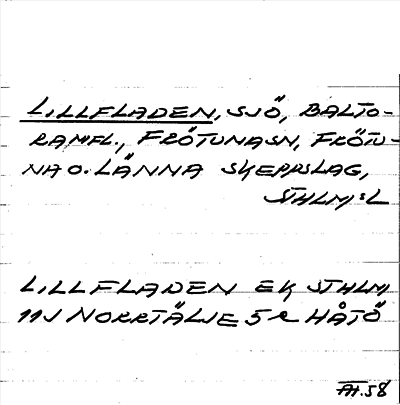 LILLFLADEN, SJÖ, BALTO-
RAMFL., FRÖTUNASN, FRÖTU-
NA O. LÄNNA SKEPPSLAG,
STHLM:S L
LILLFLADEN EK STHLM
11J NORRTÄLJE 5 R HÅTÖ
AH. 58